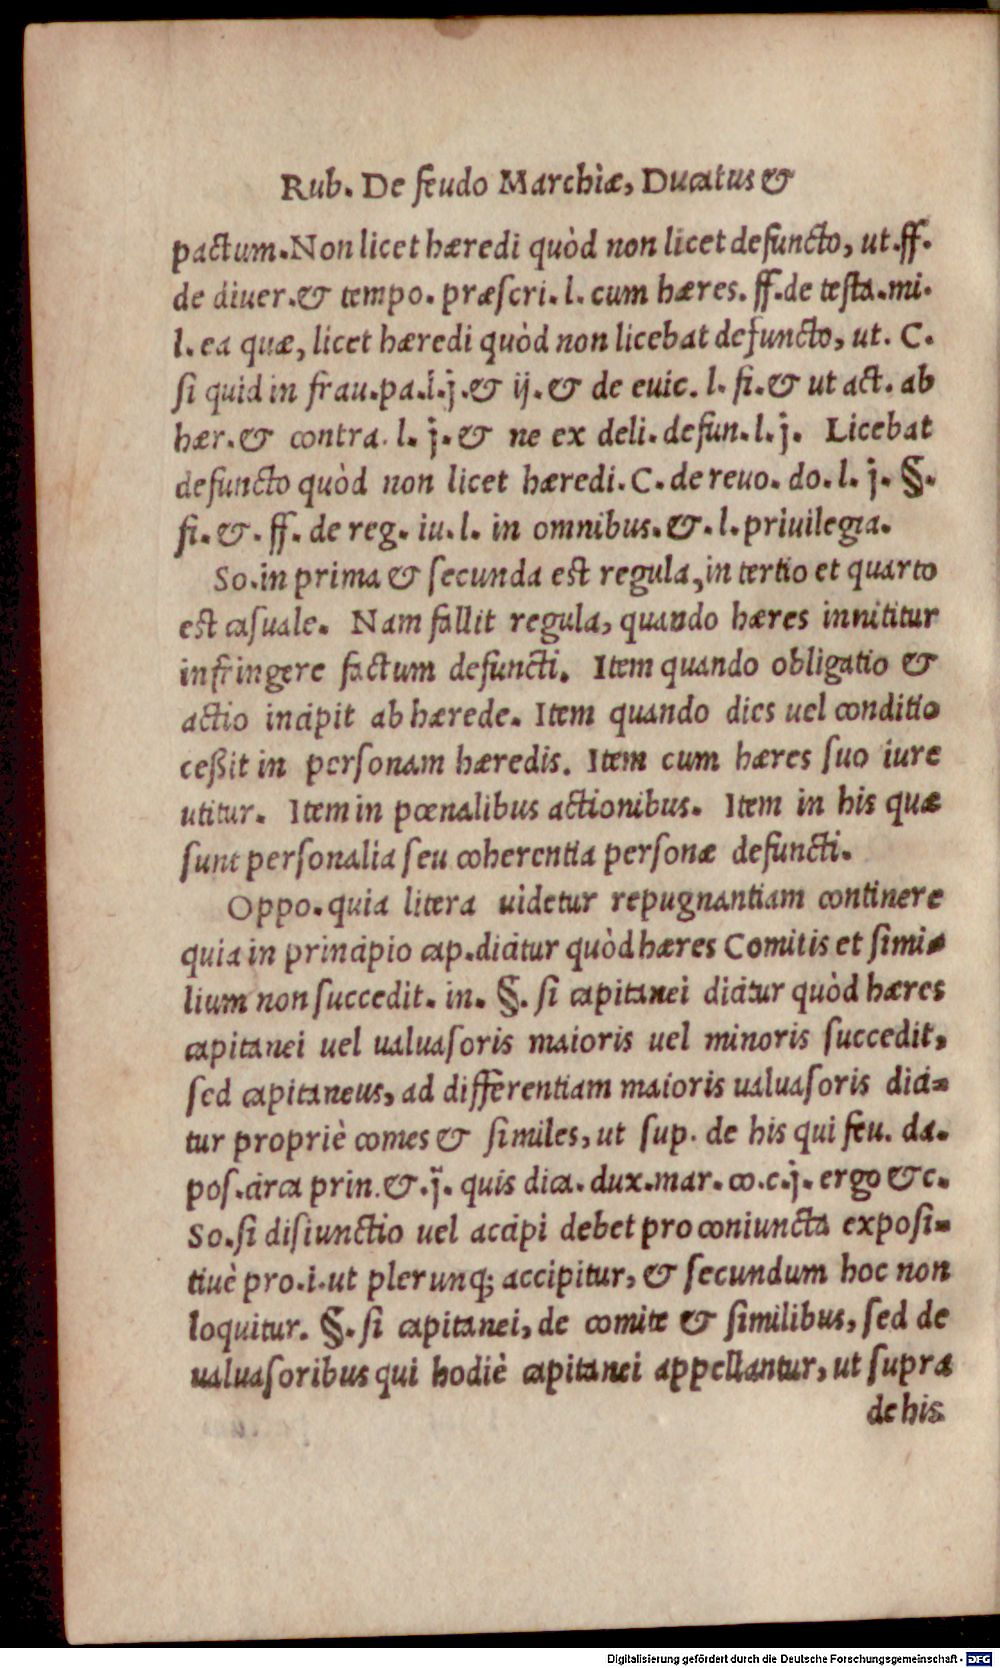 Rub. De feudo Marchiæ, Ducatus &
pactum. Non licet hæredi quòd non licet defuncto, ut. ff.
de diuer. & tempo. præscri. l. cum hæres. ff. de testa. mi.
l. ea quæ, licet hæredi quòd non licebat defuncto, ut. C.
si quid in frau. pa. l. j. & ij. & de euic. l. fi. & ut act. ab
hær. & contra. l. j. & ne ex deli. defun. l. j. Licebat
defuncto quòd non licet hæredi. C. de reuo. do. l. j. §.
fi. &. ff. de reg. iu. l. in omnibus. &. l. priuilegia.
So. in prima & secunda est regula, in tertio et quarto
est casuale. Nam fallit regula, quando hæres innititur
infringere factum defuncti. Item quando obligatio &
actio incipit ab hærede. Item quando dies uel conditio
ceßit in personam hæredis. Item cum hæres suo iure
utitur. Item in pœnalibus actionibus. Item in his quæ
sunt personalia seu coherentia personæ defuncti.
Oppo. quia litera uidetur repugnantiam continere
quia in principio cap. dicitur quòd hæres Comitis et simi-
lium non succedit. in. §. si capitanei dicitur quòd hæres
capitanei uel ualuasoris maioris uel minoris succedit,
sed capitaneus, ad differentiam maioris ualuasoris dici-
tur propriè comes & similes, ut sup. de his qui feu. da.
pos. circa prin. &. j̃. quis dica. dux. mar. co. c. j. ergo &c.
So. si disiunctio uel accipi debet pro coniuncta exposi-
tiuè pro. i. ut plerunq; accipitur, & secundum hoc non
loquitur. §. si capitanei, de comite & similibus, sed de
ualuasoribus qui hodiè capitanei appellantur, ut supra
de his
Digitalisierung gefördert durch die Deutsche Forschungsgemeinschaft - DFG